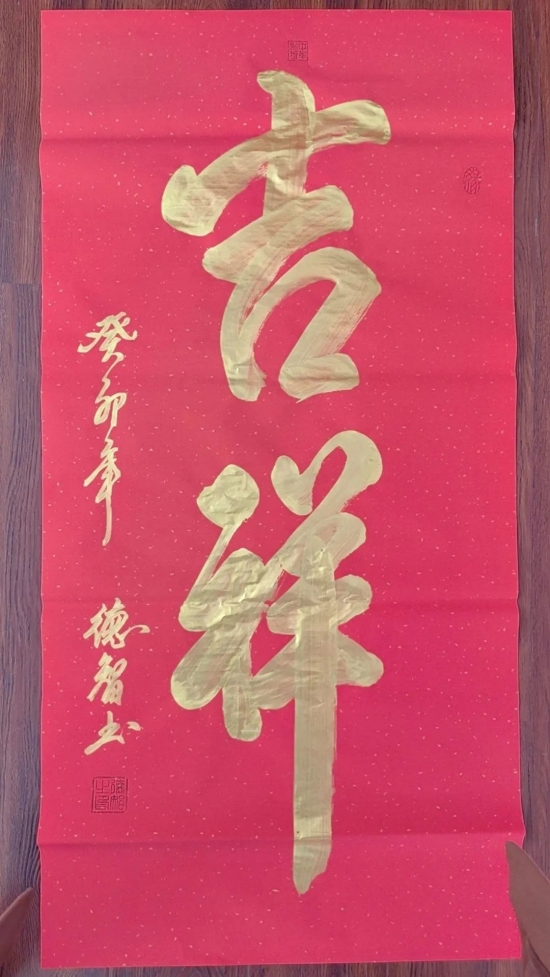 吉祥
癸卯年 德智书